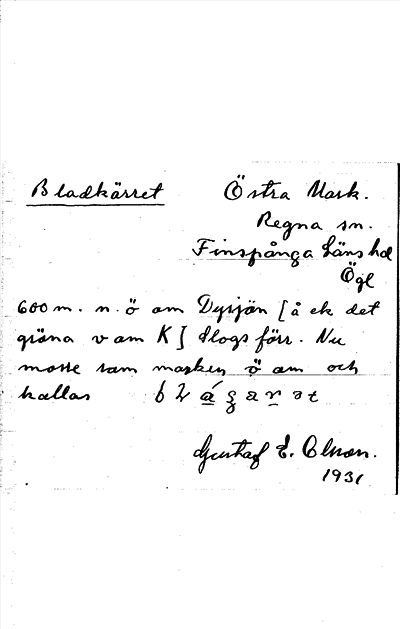 Bladkärret
Östra Mark.
Regna sn.
Finspånga Läns hd
Ögl
600 m. n. ö om Dysjön [å ek det
gröna v om K] slogs förr. Nu
mosse som marken ö om och
kallas
Gustaf E. Olsson.
1931